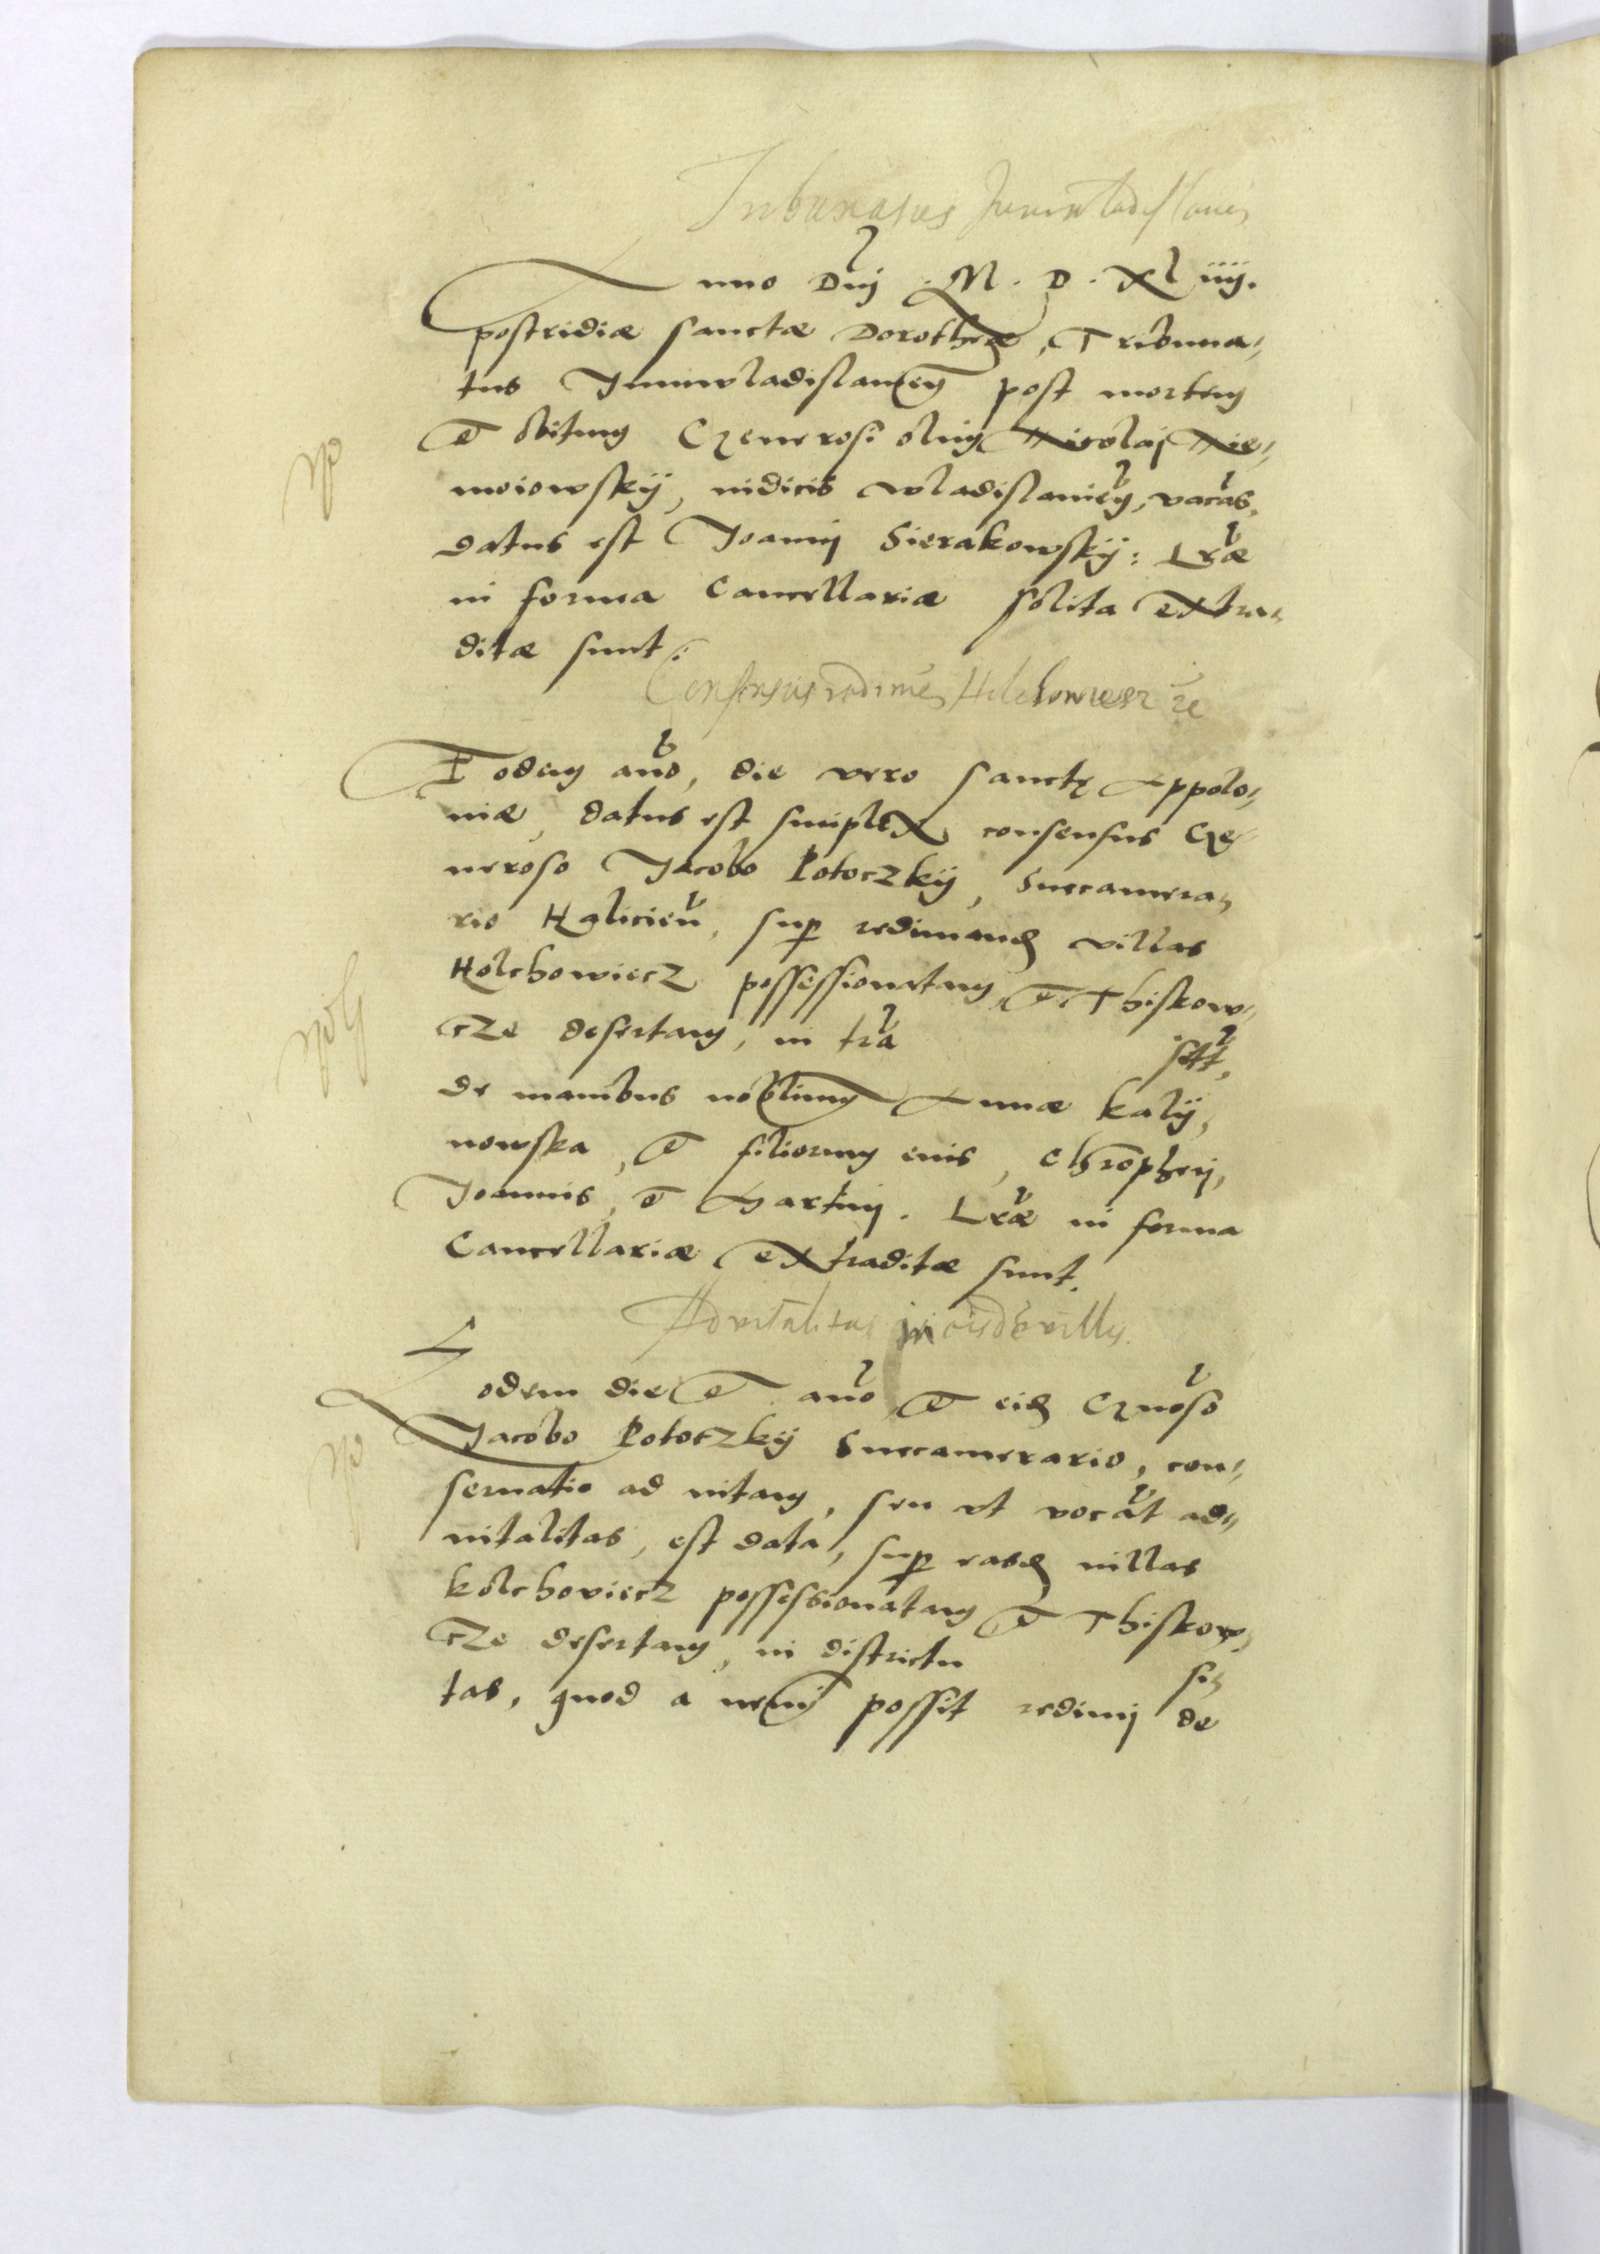 Tribunatus Juniwladislauien
Anno Dnj . M . D . XLiiij.
postridiæ sanctæ Dorotheæ, Tribuna-
tus Juniwladislauien post mortem
et obitum Generosi olim Nicolaj Nie-
moiowskij, iudicis wladislauien, vacans,
datus est Joannj Sierakowskij: Lræ
in forma Cancellariæ solita extra-
ditæ sunt:
Consensus redimen Holchowiecz
Eodem anno, die vero sanctę Appolo-
niæ, datus est simplex consensus Ge-
neroso Jacobo Potoczkij, Succamera-
rio Halicien, sup redimend villas
Holchowiecz possessionatam, et Thiskow-
cze desertam, in tra
sitt,
de manibus nobilium Annæ Kalij-
nowska, et filiorum eius, Chrophorj,
Joannis, et Martinj. Lræ in forma
Cancellariæ extraditæ sunt.
Advitalitas in eisdē villis
Eodem die et anno, et eid Gnoso
Jacobo Potoczkij Succamerario, con-
seruatio ad uitam, seu ut vocant ad-
uitalitas, est data, sup easd uillas
Kolchoviecz possessionatam et Thiskow-
cze desertam, in districtu
si-
tas, quod a nemine possit redimj de